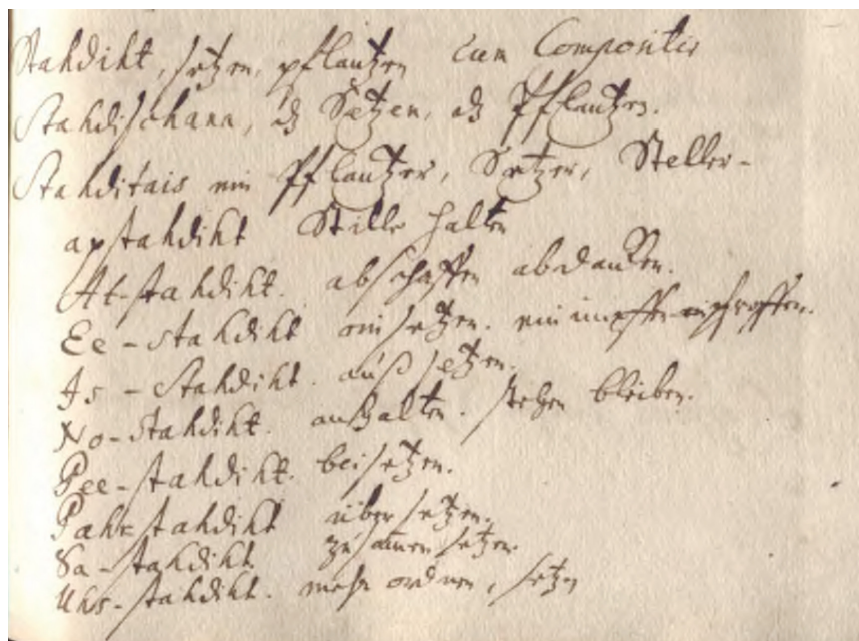 Stahdiht, setzen, pflantzen cum Compositis
Stahdischana, ds Setzen, ds Pflantzen.
Stahditais ein Pflantzer, Setzer, Steller-
apstahdiht Stille halten
At-stahdiht. abschaffen abdancken.
Ee-stahdiht einsetzen. einimpffen einpfroffen.
Is-Stahdiht. außsetzen.
No-stahdiht. anhalten. stehen bleiben.
Pee-stahdiht. beisetzen.
Pahrstahdiht übersetzen.
Sa-stahdiht zusamen setzen.
Uhs-stahdiht. ordnen, setzen